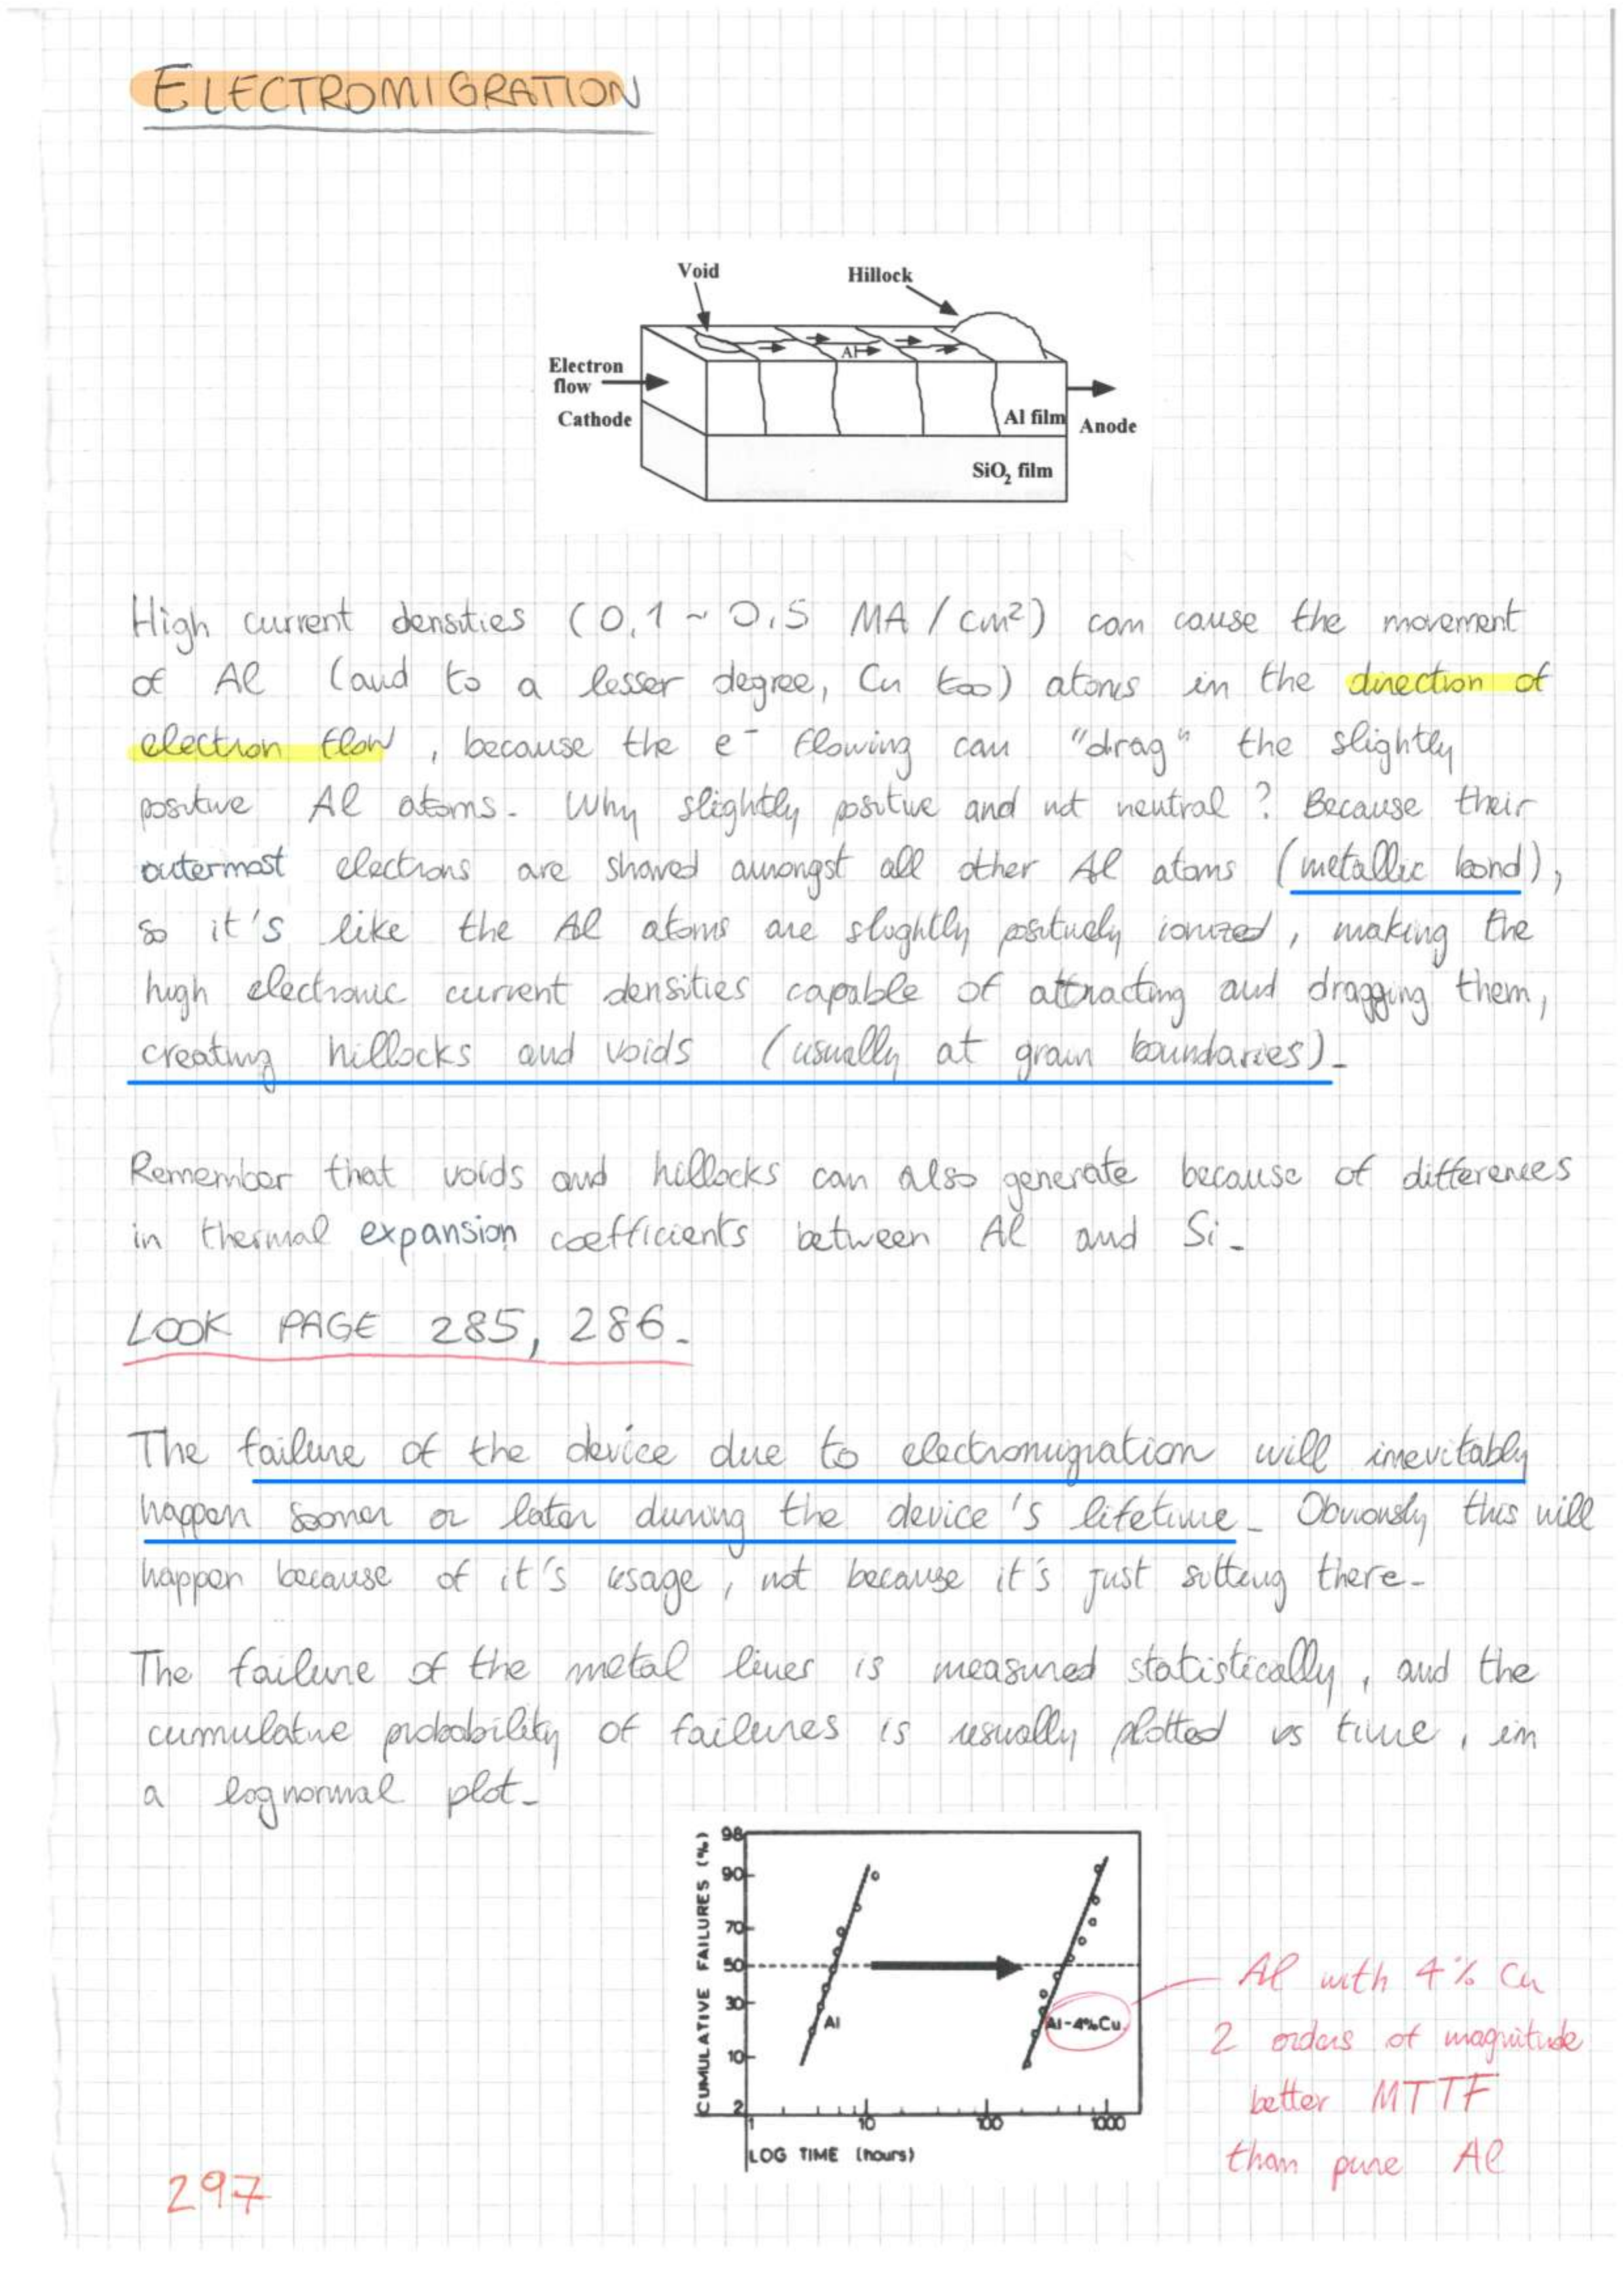 ELECTROMIGRATION
Void
Hillock
Electron
flow
Al
Cathode
Al film
Anode
SiO2 film
High current densities (0,1 ~ 0,5 MA/cm²) can cause the movement
of Al (and to a lesser degree, Cu too) atoms in the direction of
electron flow, because the e⁻ flowing can "drag" the slightly
positive Al atoms. Why slightly positive and not neutral? Because their
outermost electrons are shared amongst all other Al atoms (metallic bond),
so it's like the Al atoms are slightly positively ionized, making the
high electronic current densities capable of attracting and dragging them,
creating hillocks and voids (usually at grain boundaries).
Remember that voids and hillocks can also generate because of differences
in thermal expansion coefficients between Al and Si.
LOOK PAGE 285, 286.
The failure of the device due to electromigration will inevitably
happen sooner or later during the device's lifetime. Obviously this will
happen because of it's usage, not because it's just sitting there.
The failure of the metal lines is measured statistically, and the
cumulative probability of failures is usually plotted vs time, in
a lognormal plot.
CUMULATIVE FAILURES (%)
98
90
70
50
30
10
2
Al
Al-4%Cu
1 10 100 1000
LOG TIME (hours)
Al with 4% Cu
2 orders of magnitude
better MTTF
than pure Al
297